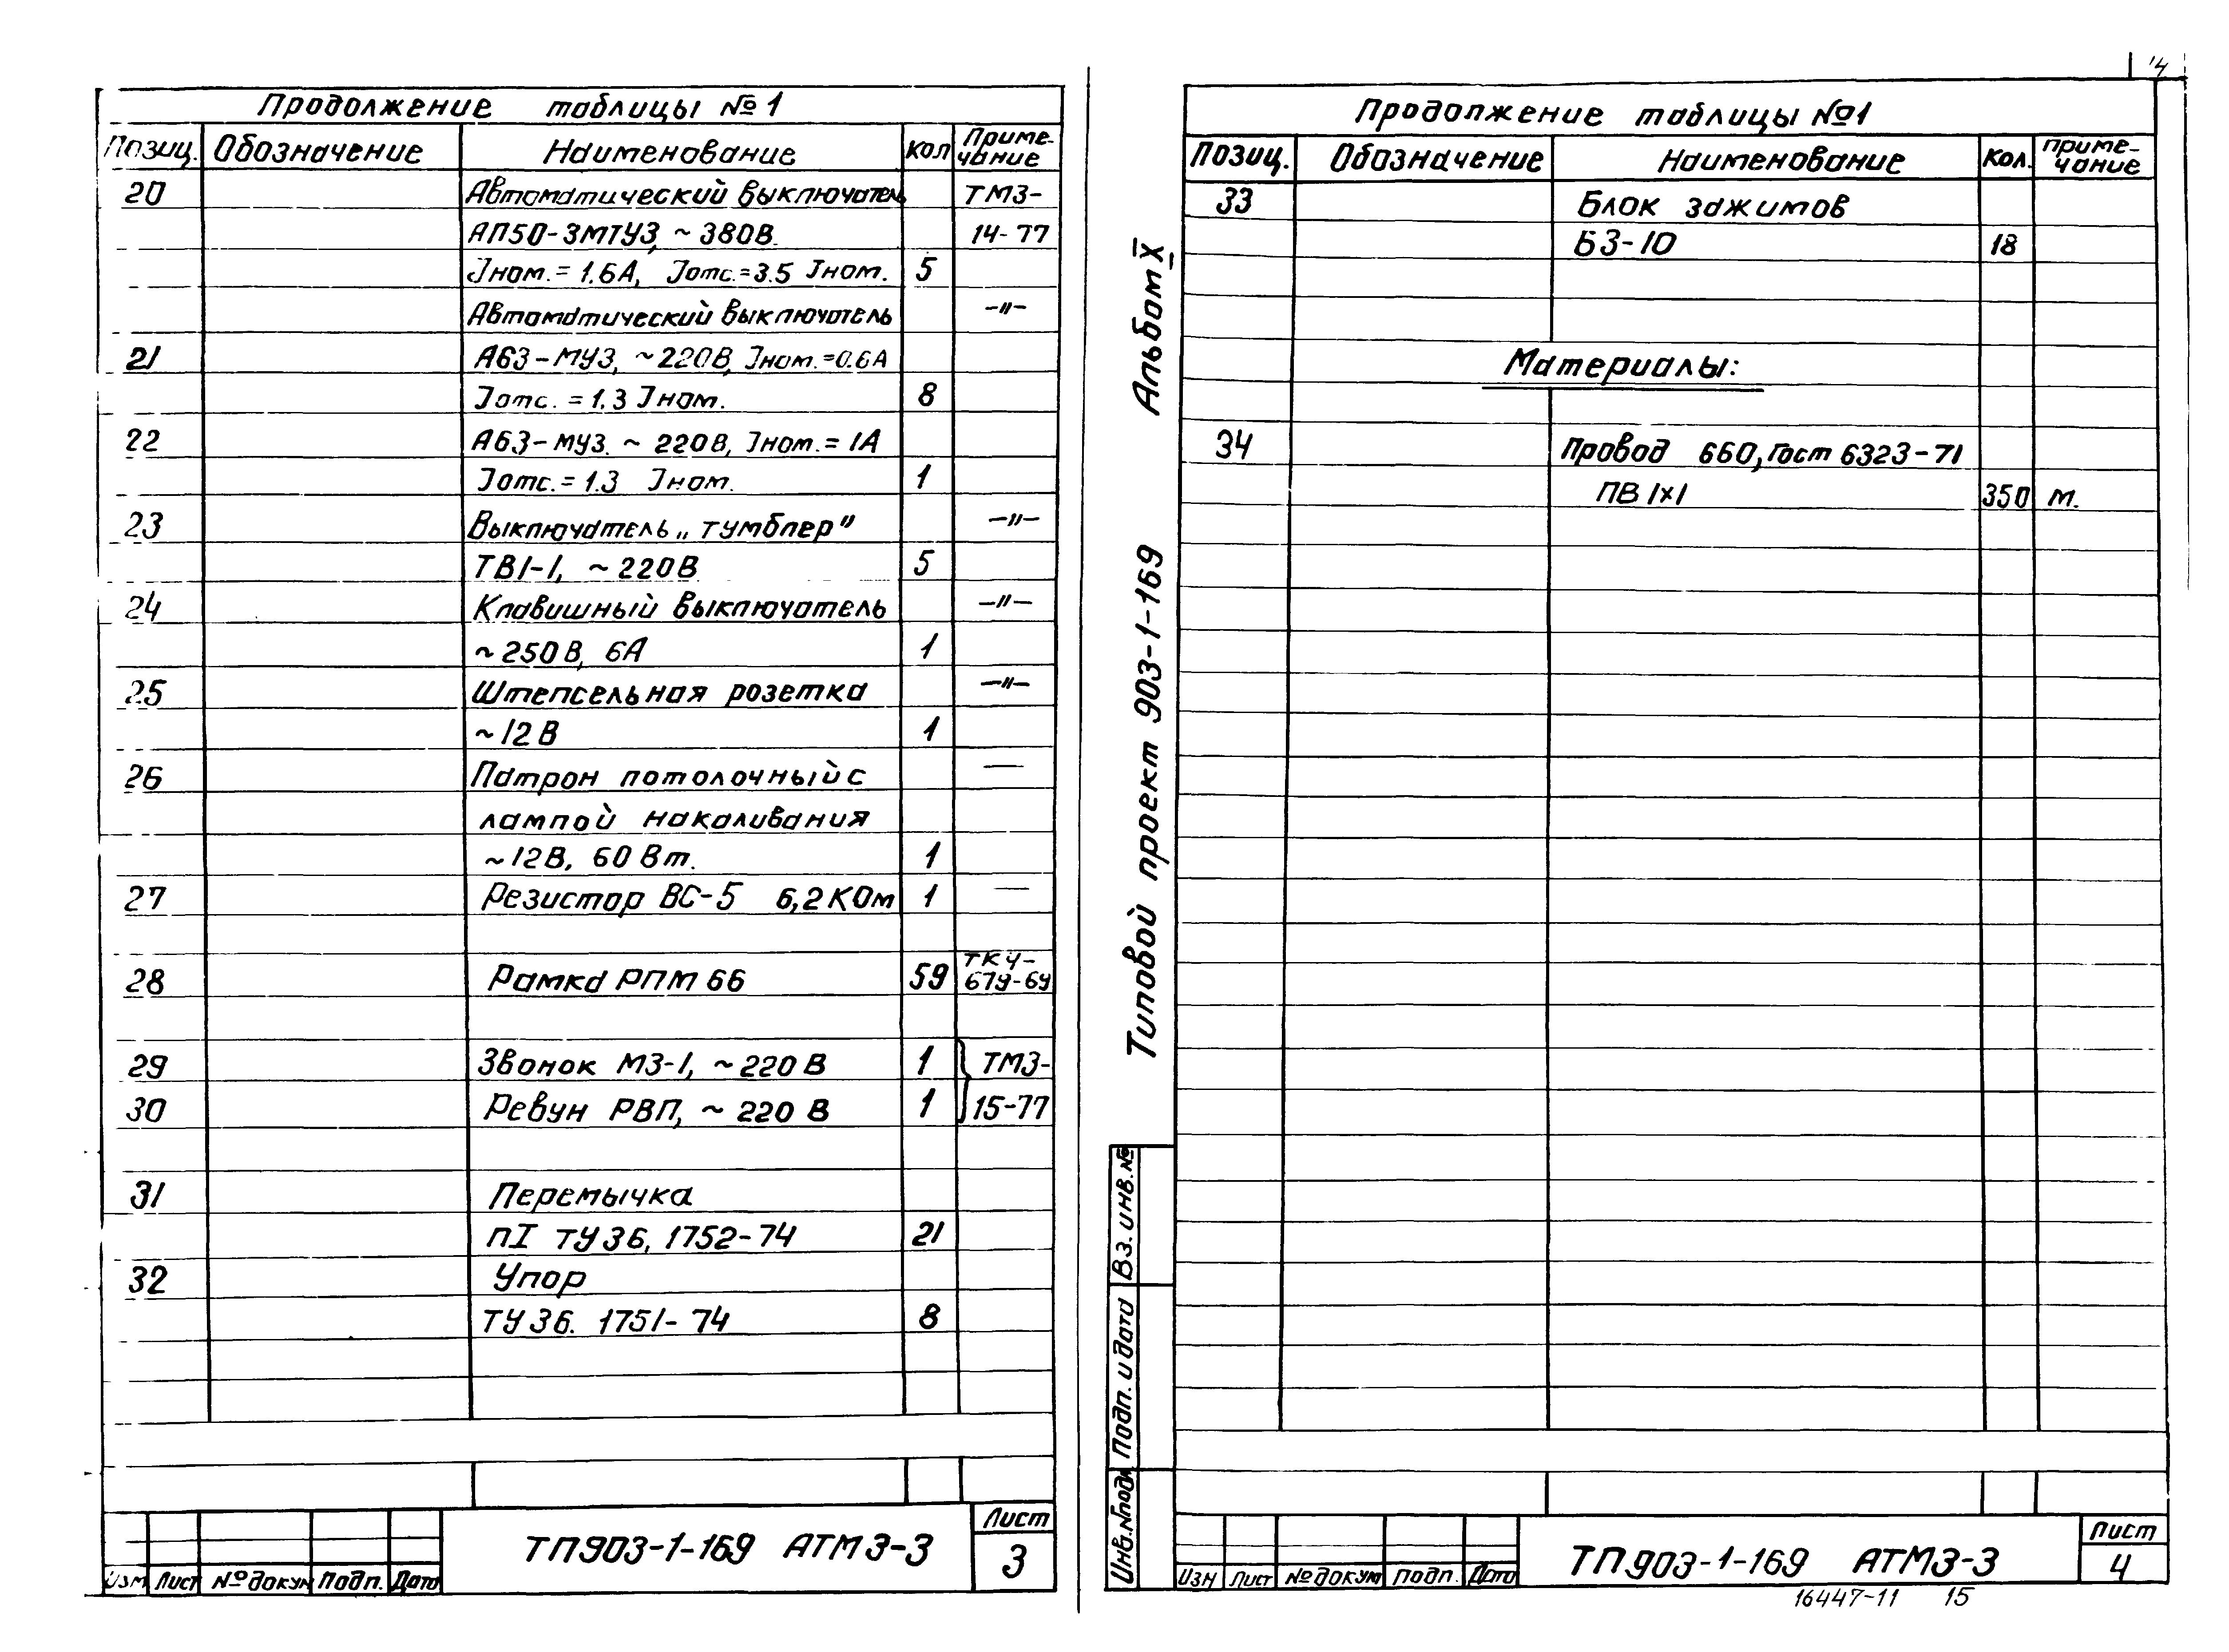 Продолжение таблицы №1
Позиц. Обозначение Наименование Кол Приме-
чание
20 Автоматический выключатель ТМ3-
АП50-3МТУ3, ~380В. 14-77
Jном.=1.6А, Jотс.=3.5 Jном. 5
Автоматический выключатель —"—
21 А63-МУЗ, ~220В, Jном.=0.6А
Jотс.=1.3 Jном. 8
22 А63-МУЗ. ~220В, Jном.=1А
Jотс.=1.3 Jном. 1
23 Выключатель „тумблер" —"—
ТВ1-1, ~220В 5
24 Клавишный выключатель —"—
~250В, 6А 1
25 Штепсельная розетка —"—
~12В 1
26 Патрон потолочный с —
лампой накаливания
~12В, 60Вт. 1
27 Резистор ВС-5 6,2КОм 1 —
28 Рамка РПМ 66 59 ТК4-
679-69
29 Звонок МЗ-1, ~220В 1 ТМ3-
30 Ревун РВП, ~220В 1 15-77
31 Перемычка
ПI ТУ36, 1752-74 21
32 Упор
ТУ36. 1751-74 8
Изм Лист №докум Подп. Дата
ТП903-1-169 АТМ3-3
Лист
3
14
Продолжение таблицы №1
Позиц. Обозначение Наименование Кол. Приме-
чание
33 Блок зажимов
БЗ-10 18
Материалы:
34 Провод 660, Гост 6323-71
ПВ 1х1 350 м.
Альбом X
Типовой проект 903-1-169
Вз. инв.№
Подп. и дата
Инв.№подл
Изм Лист №докум Подп. Дата
ТП903-1-169 АТМ3-3
Лист
4
16447-11 15